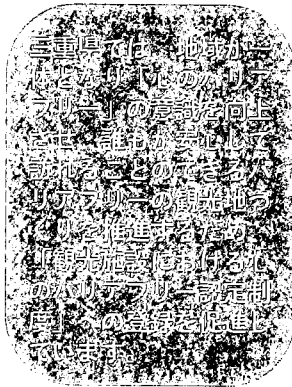 三重県では、地域が一
体となり「心のバリア
フリー」の意識を向上
させ、誰もが安心して
訪れることのできるバ
リアフリーの観光地づ
くりを推進するため、
「観光施設における心
のバリアフリー認定制
度」への登録を促進し
ています。